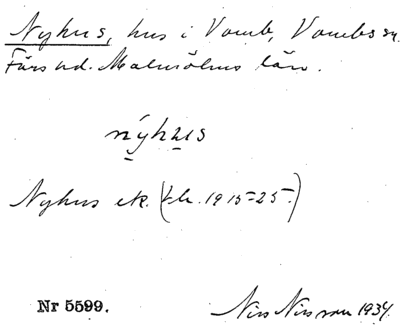 Nyhus, hus i Vomb, Vombs sn.
Färs hd. Malmöhus län.
nýhus
Nyhus ek. (kb. 1915-25.)
Nr 5599.
Nils Nilsson 1934.